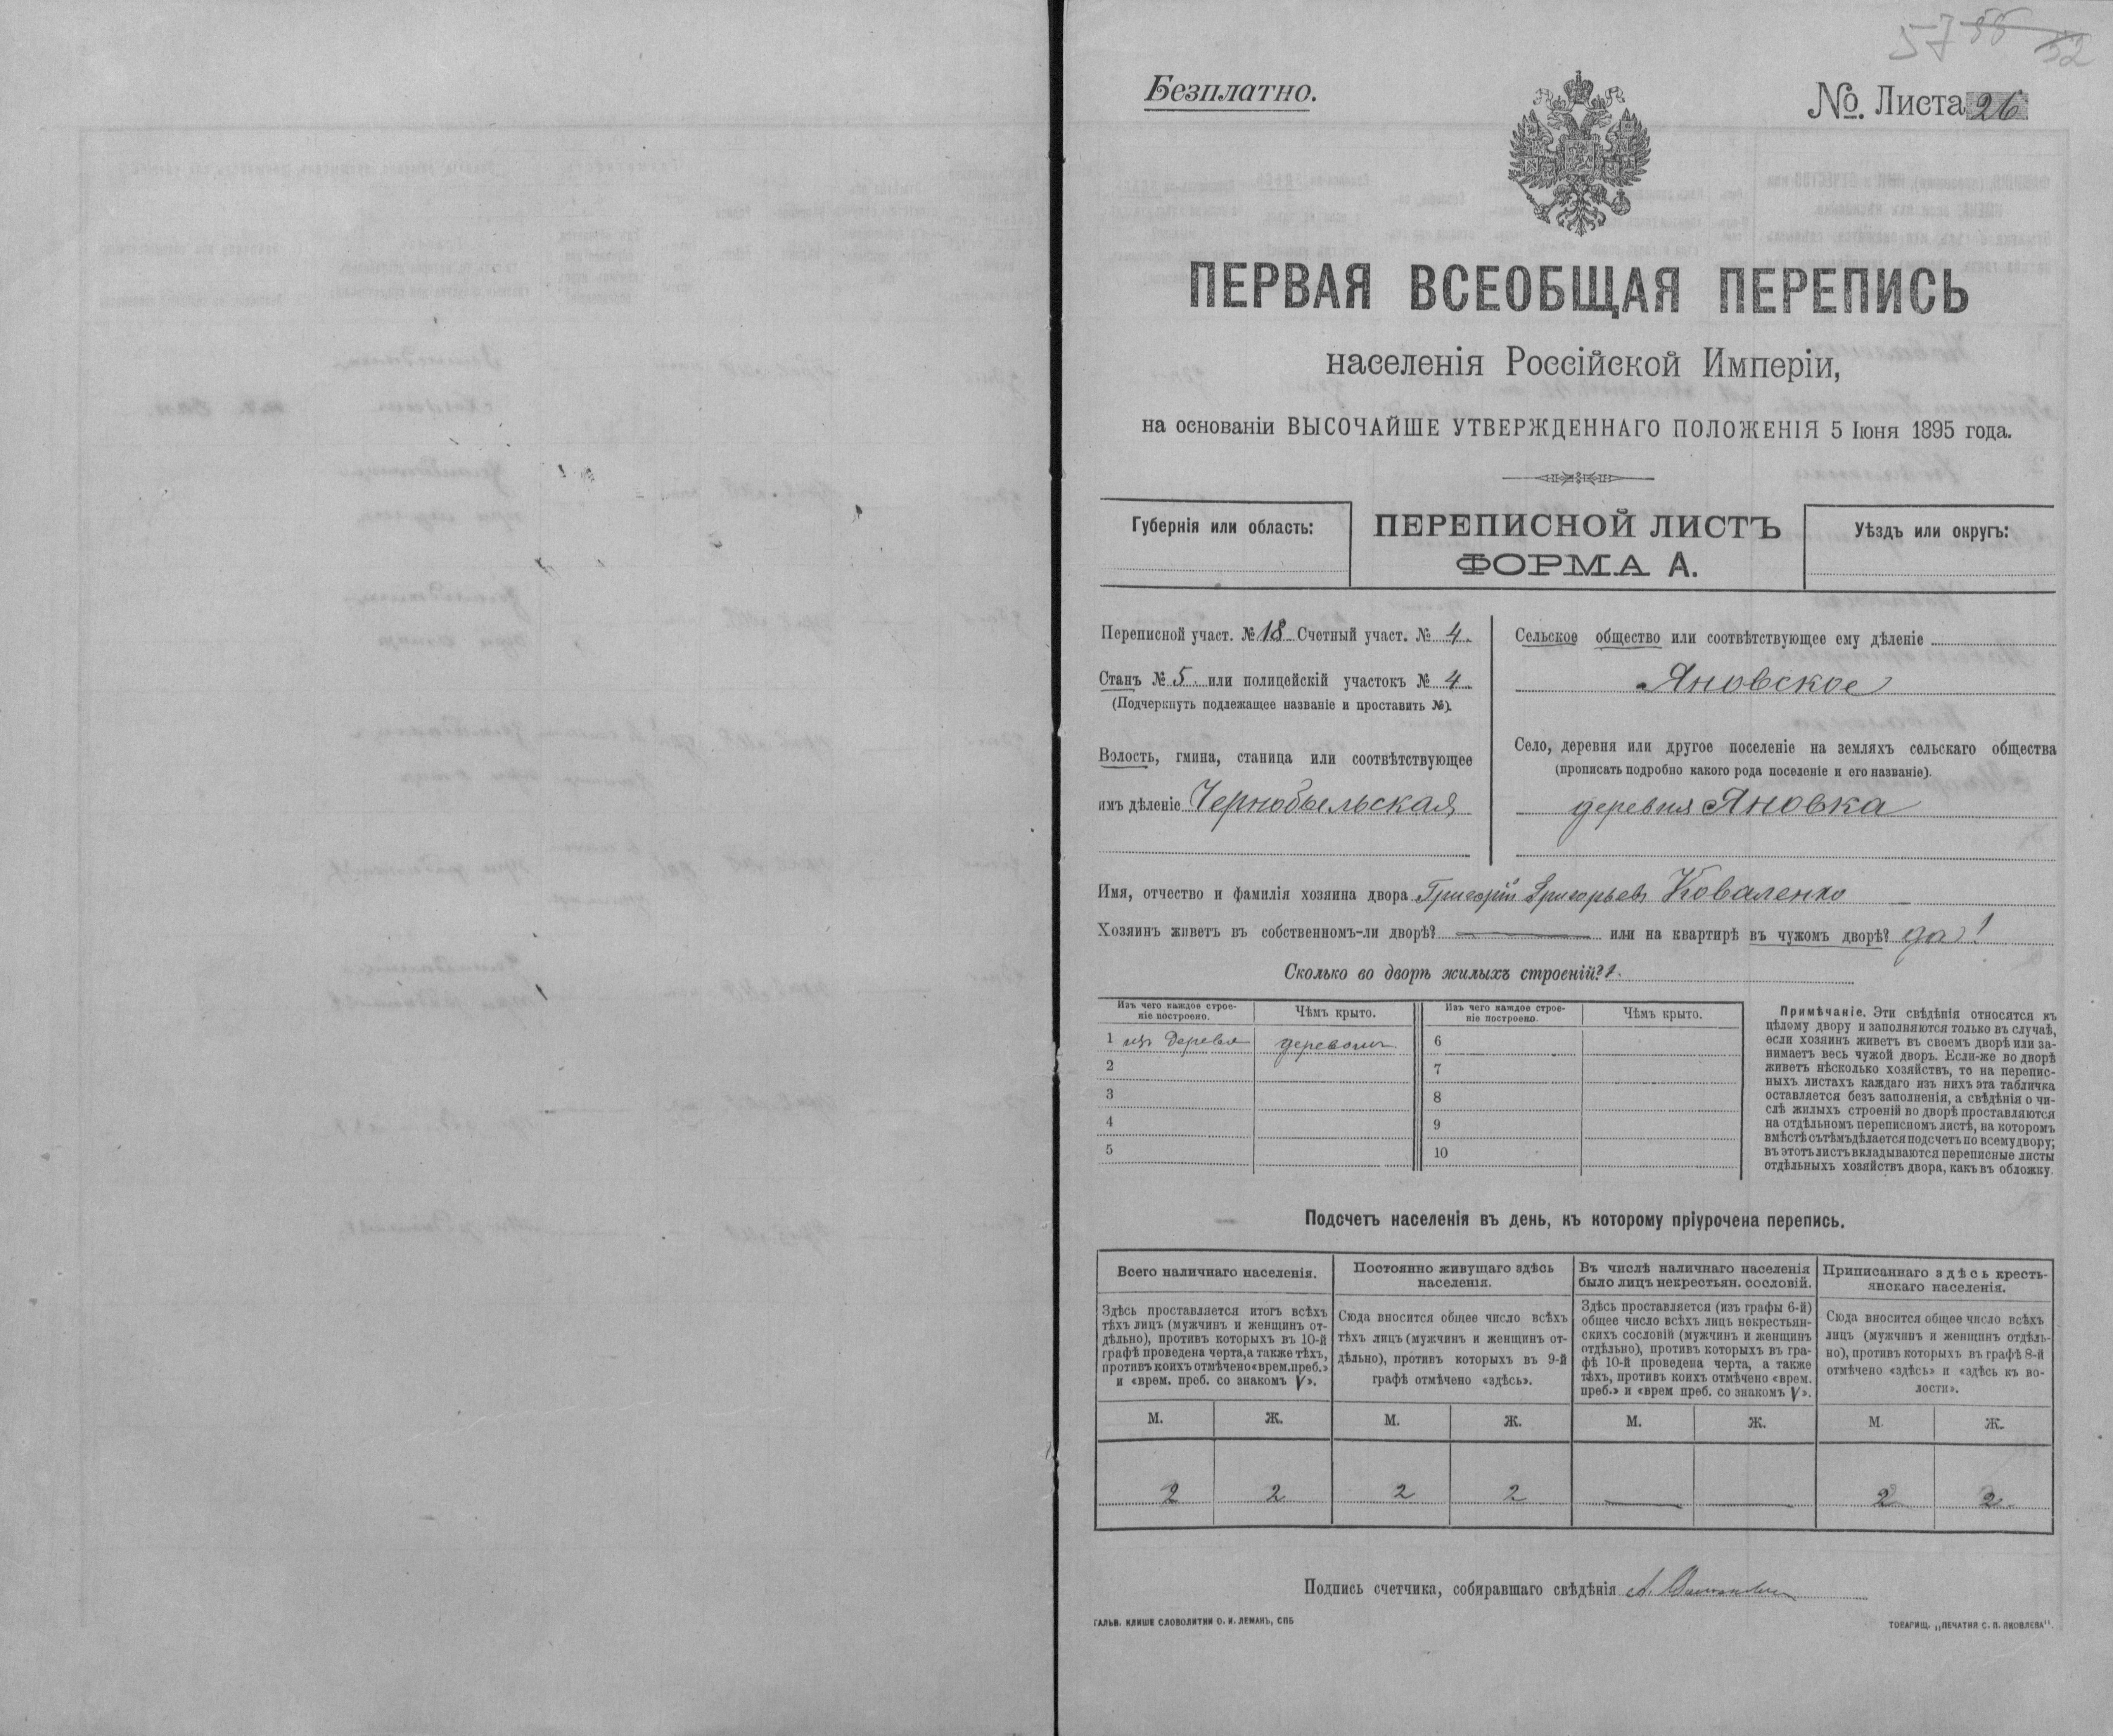 57 55 52
Безплатно.
№. Листа 26
ПЕРВАЯ ВСЕОБЩАЯ ПЕРЕПИСЬ
населенія Россійской Имперіи,
на основаніи ВЫСОЧАЙШЕ УТВЕРЖДЕННАГО ПОЛОЖЕНІЯ 5 Іюня 1895 года.
Губернія или область:
ПЕРЕПИСНОЙ ЛИСТЪ
ФОРМА А.
Уѣздъ или округъ:
Переписной участ. № 18 Счетный участ. № 4.
Станъ № 5. или полицейскій участокъ № 4.
(Подчеркнуть подлежащее названіе и проставить №).
Волость, гмина, станица или соотвѣтствующее
имъ дѣленіе Чернобыльская
Сельское общество или соотвѣтствующее ему дѣленіе
Яновское
Село, деревня или другое поселеніе на земляхъ сельскаго общества
(прописать подробно какого рода поселеніе и его названіе).
деревня Яновка
Имя, отчество и фамилія хозяина двора Григорій Григорьевъ Коваленко
Хозяинъ живетъ въ собственномъ-ли дворѣ? — или на квартирѣ въ чужомъ дворѣ? да!
Сколько во дворѣ жилыхъ строеній? 1.
Изъ чего каждое строе-
ніе построено.
Чѣмъ крыто.
Изъ чего каждое строе-
ніе построено.
Чѣмъ крыто.
1 изъ дерева деревомъ 6
2 7
3 8
4 9
5 10
Примѣчаніе. Эти свѣдѣнія относятся къ
цѣлому двору и заполняются только въ случаѣ,
если хозяинъ живетъ въ своемъ дворѣ или за-
нимаетъ весь чужой дворъ. Если-же во дворѣ
живетъ нѣсколько хозяйствъ, то на перепис-
ныхъ листахъ каждаго изъ нихъ эта табличка
оставляется безъ заполненія, а свѣдѣнія о чи-
слѣ жилыхъ строеній во дворѣ проставляются
на отдѣльномъ переписномъ листѣ, на которомъ
вмѣстѣ съ тѣмъ дѣлается подсчетъ по всему двору;
въ этотъ листъ вкладываются переписные листы
отдѣльныхъ хозяйствъ двора, какъ въ обложку.
Подсчетъ населенія въ день, къ которому пріурочена перепись.
Всего наличнаго населенія.
Здѣсь проставляется итогъ всѣхъ
тѣхъ лицъ (мужчинъ и женщинъ от-
дѣльно), противъ которыхъ въ 10-й
графѣ проведена черта, а также тѣхъ,
противъ коихъ отмѣчено «врем. преб.»
и «врем. преб. со знакомъ V».
Постоянно живущаго здѣсь
населенія.
Сюда вносится общее число всѣхъ
тѣхъ лицъ (мужчинъ и женщинъ от-
дѣльно), противъ которыхъ въ 9-й
графѣ отмѣчено «здѣсь».
Въ числѣ наличнаго населенія
было лицъ некрестьян. сословій.
Здѣсь проставляется (изъ графы 6-й)
общее число всѣхъ лицъ некрестьян-
скихъ сословій (мужчинъ и женщинъ
отдѣльно), противъ которыхъ въ гра-
фѣ 10-й проведена черта, а также
тѣхъ, противъ коихъ отмѣчено «врем.
преб.» и «врем преб. со знакомъ V».
Приписаннаго здѣсь кресть-
янскаго населенія.
Сюда вносится общее число всѣхъ
лицъ (мужчинъ и женщинъ отдѣль-
но), противъ которыхъ въ графѣ 8-й
отмѣчено «здѣсь» и «здѣсь къ во-
лости».
М. Ж. М. Ж. М. Ж. М. Ж.
2 2 2 2 — — 2 2
Подпись счетчика, собиравшаго свѣдѣнія А.
ГАЛЬВ. КЛИШЕ СЛОВОЛИТНИ О. И. ЛЕМАНЪ, СПБ
ТОВАРИЩ. „ПЕЧАТНЯ С. П. ЯКОВЛЕВА".